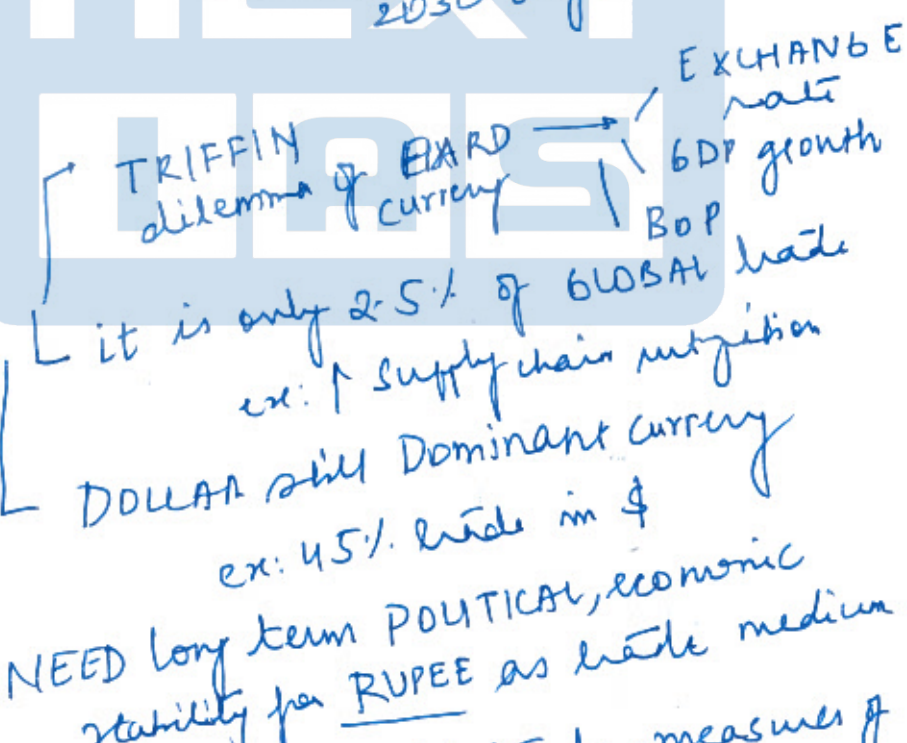 NEXT
IAS
2030
TRIFFIN
dilemma of HARD
currency
EXCHANGE
rate
GDP growth
BOP
it is only 2.5% of GLOBAL trade
ex: ↑ supply chain
DOLLAR still Dominant currency
ex: 45% trade in $
NEED long term POLITICAL, economic
stability for RUPEE as trade medium
measures of